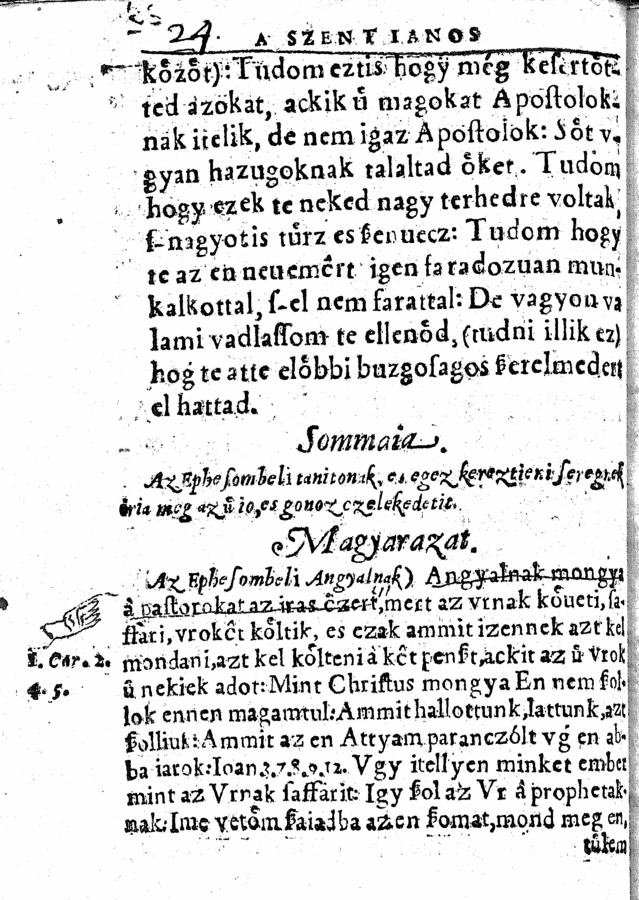 24.
A SZENT IANOS
kőzőt): Tudom eztis hogy még kesertőt-
ted azokat, ackik ű magokat Apoſtolok-
nak itelik, de nem igaz Apoſtolok: Sőt v.
gyan hazugoknak talaltad őket. Tudom
hogy ezek te neked nagy terhedre voltak,
ſ-nagyotis tűrz es ßenuecz: Tudom hogy
te az en neuemêrt igen faradozuan mun-
kalkottal, ſ-el nem farattal: De vagyon va
lami vadlaſſom te ellenőd, (tudni illik ez)
hog te atte előbbi buzgoſagos ßerelmedert
el hattad.
Sommaia.
Az Ephesombeli tanitonak, es egez kereztieni ſeregnek
iria meg az ű io, es gonoz czelekedetit.
Magyarazat.
Az Ephesombeli Angyalnak) Angyalnak mongya
â paſtorokat az iras êzert, mert az vrnak kőueti, ſa-
ffari, vrokêt kőltik, es ezak ammit izennek azt kel
mondani, azt kel kőlteni â kêt penßt, ackit az ű Vrok
ű nekiek adot: Mint Chriſtus mongya En nem ßol-
lok ennen magamtul: Ammit hallottunk, lattunk, azt
ßolliuk: Ammit az en Attyam paranczólt vg en ab-
ba iarok: Ioan 3.7.8.9.12. Vgy itellyen minket ember
mint az Vrnak ſaffarit: Igy ßol az Vr â prophetak-
nak: Ime vetőm ßaiadba az en ßomat, mond meg en,
tűlem
1. Cor. 2.
4. 5.